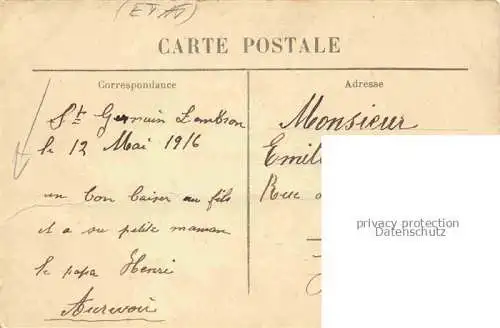 (ETAT)
CARTE POSTALE
Correspondance
Adresse
St Germain Lembron
le 12 Mai 1916
un bon baiser au fils
et a sa petite maman
le papa Henri
Aurevoir
Monsieur
Emil
Rue
privacy protection
Datenschutz